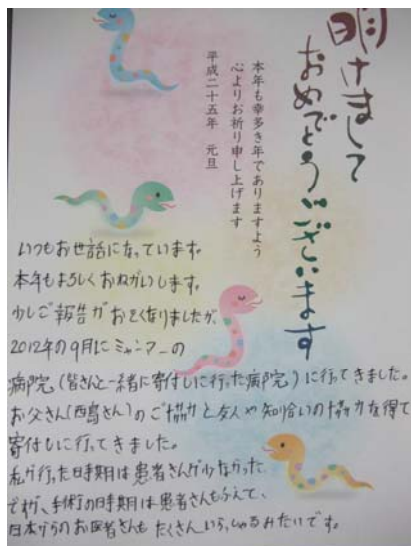 明けまして
おめでとうございます
本年も幸多き年でありますよう
心よりお祈り申し上げます
平成二十五年 元旦
いつもお世話になっています。
本年もよろしくおねがいします。
少しご報告がおそくなりましたが、
2012年の9月にミャンマーの
病院(皆さんと一緒に寄付しに行った病院)に行ってきました。
お父さん(西島さん)のご協力と友人や知り合いの協力を得て
寄付しに行ってきました。
私が行った時期は患者さんが少なかった
ですが、手術の時期は患者さんもふえて、
日本からのお医者さんも たくさんいらっしゃるみたいです。